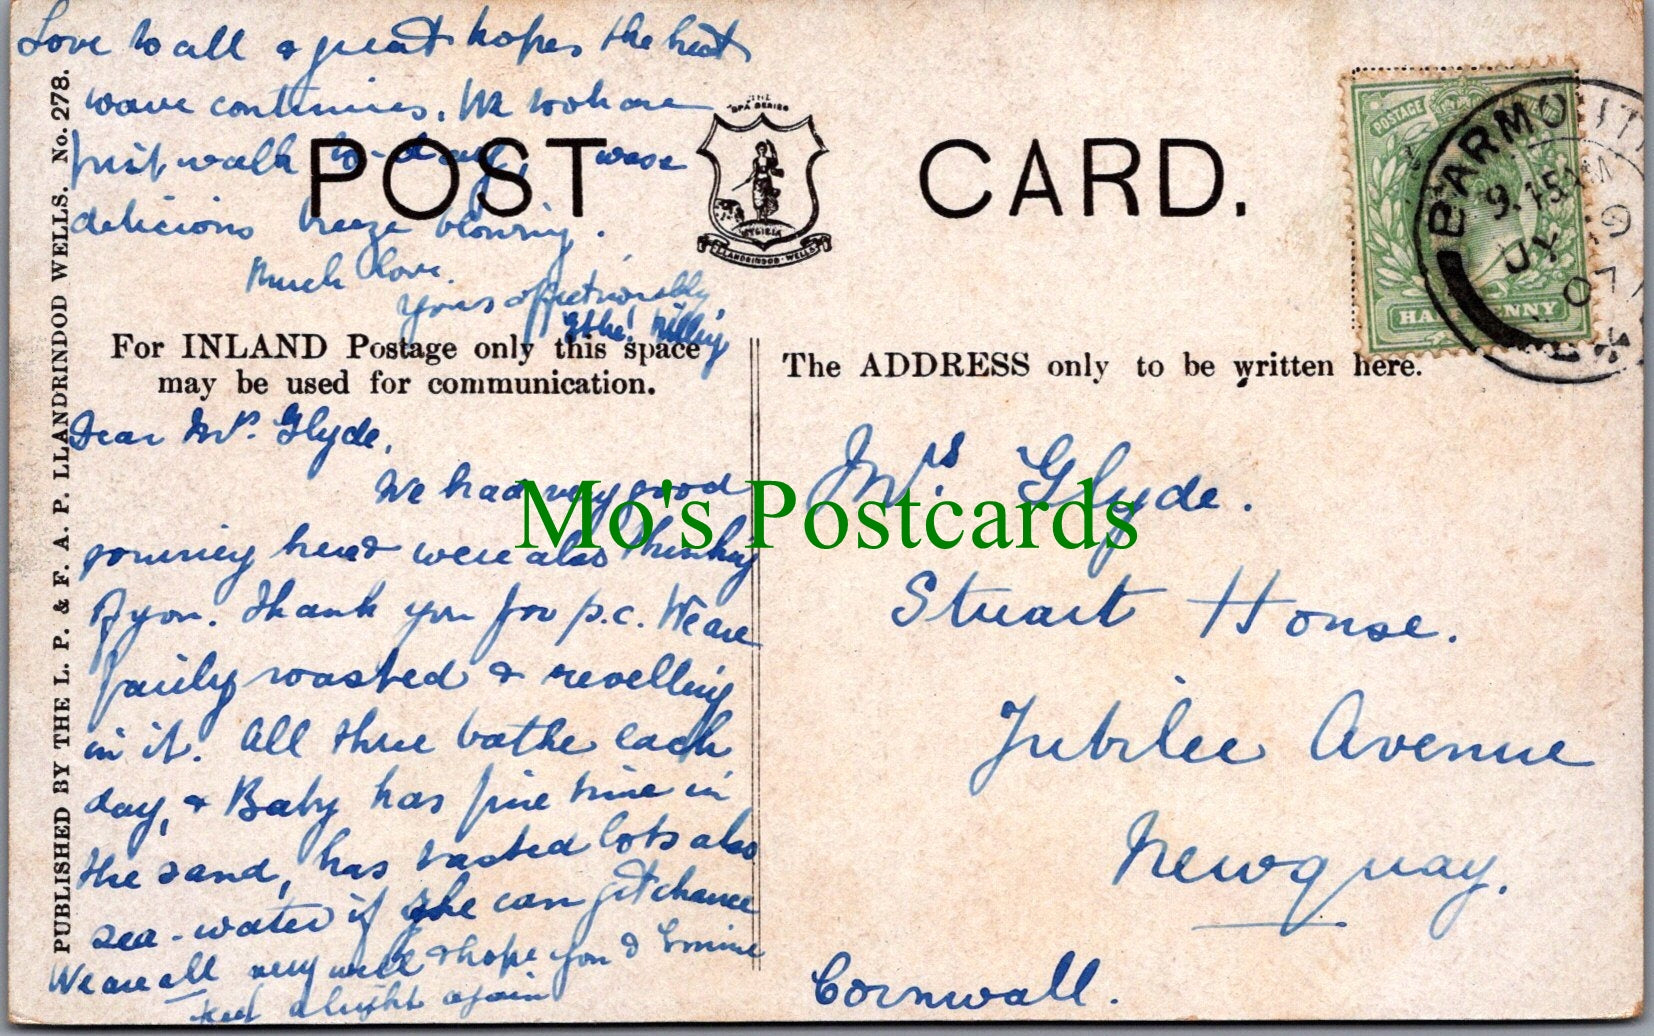 Love to all & great hopes the heat
wave continues. We took our
first walk to-day, was a
delicious breeze blowing.
Much love.
Yours affectionately,
POST CARD.
THE SPA SERIES
HYGIEIA
LLANDRINDOD-WELLS
BARMOUTH
9.15 AM
JY 9
07
POSTAGE
HALFPENNY
For INLAND Postage only this space
may be used for communication.
The ADDRESS only to be written here.
Dear Mrs. Glyde,
We had very good
journey here & were also thinking
of you. Thank you for p.c. We are
fairly roasted & revelling
in it. All three bathe each
day, & Baby has fine time in
the sand, has tasted lots also
sea-water if she can get chance
We are all very well & hope you &
feel alright again
Mrs. Glyde.
Stuart House.
Jubilee Avenue
Newquay.
Cornwall.
PUBLISHED BY THE L. P. & F. A. P. LLANDRINDOD WELLS. No. 278.
Mo's Postcards